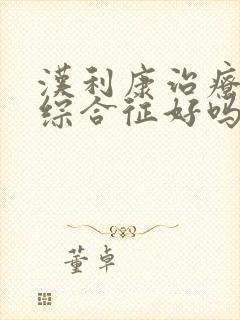 漢利康治療
综合征好吗
董卓